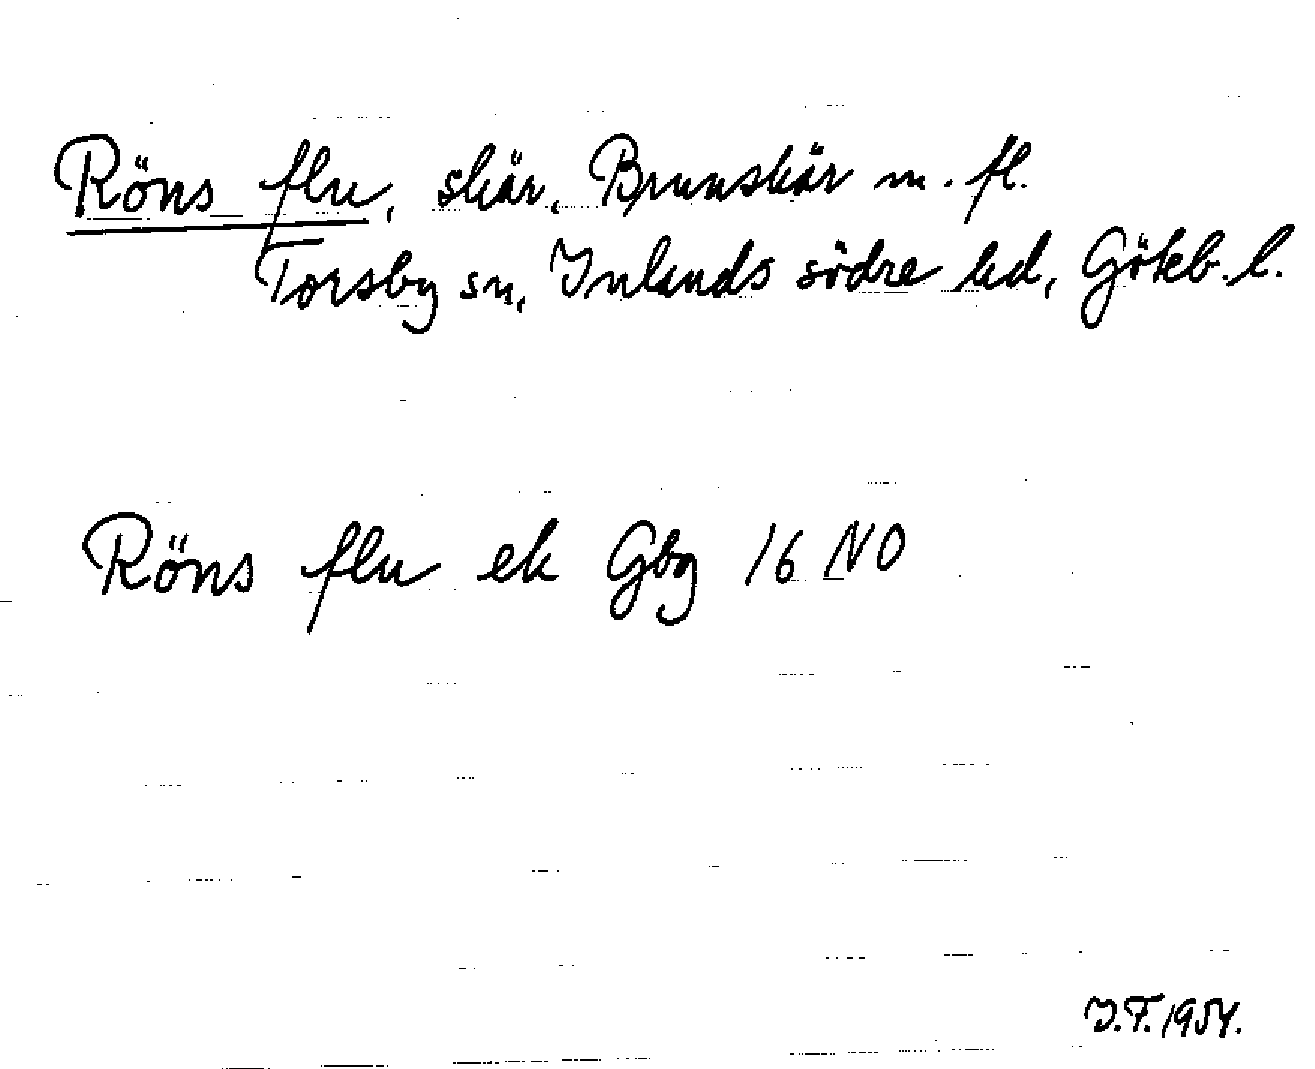 Röns flu, skär, Brunskär m. fl.
Torsby sn, Inlands södre hd, Göteb. l.
Röns flu ek Gbg 16 NO
I.F. 1954.